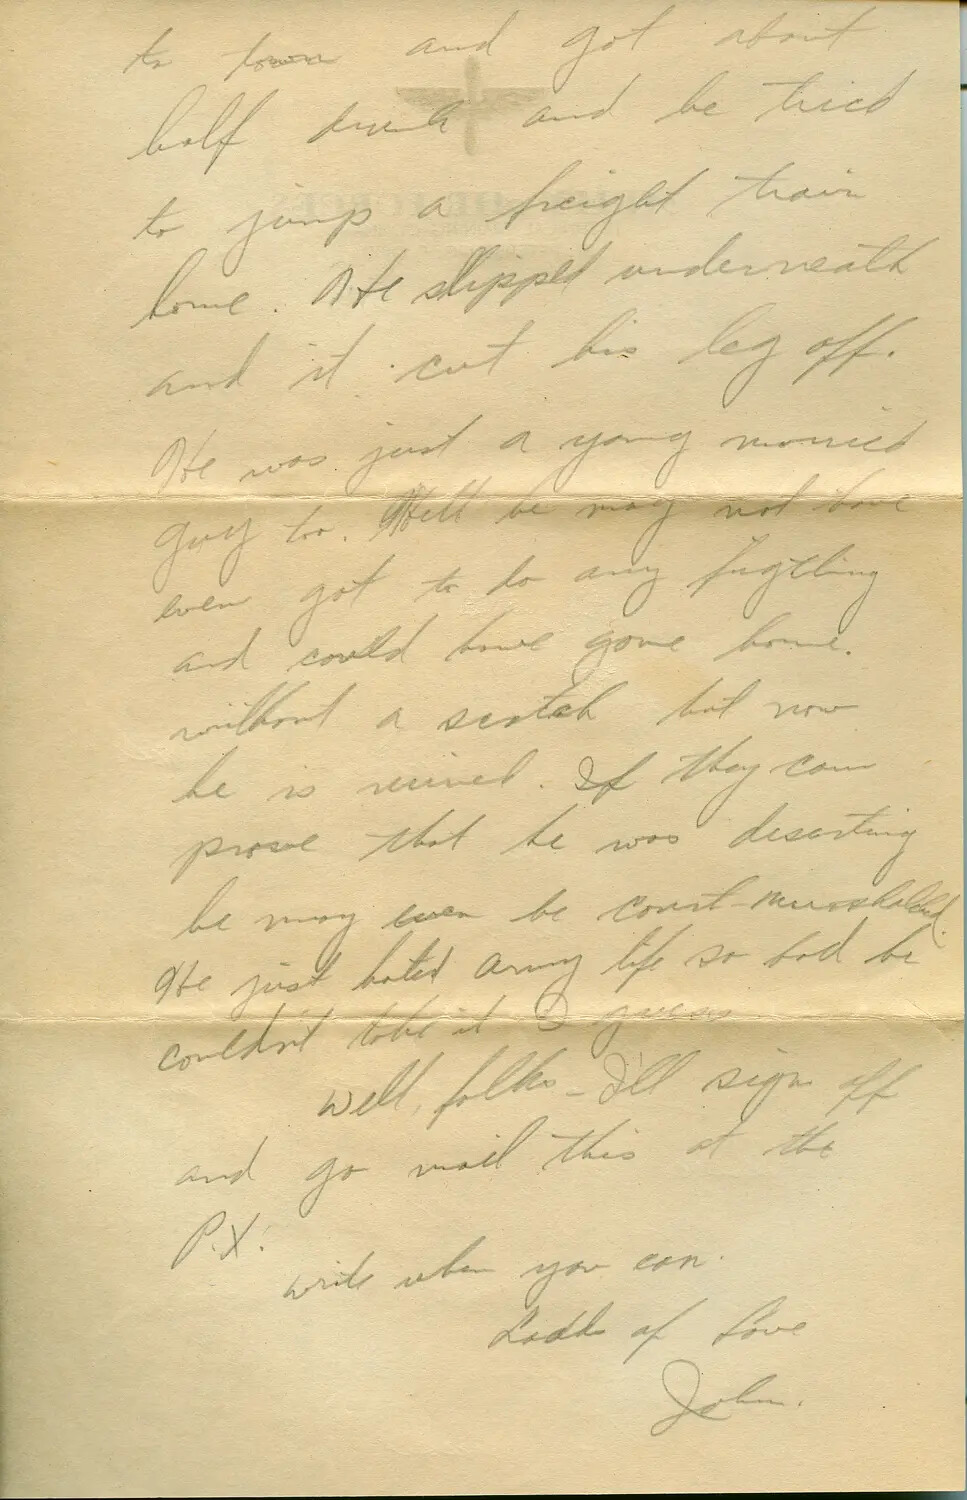 to town and got about
half drunk and he tried
to jump a freight train
home. He slipped underneath
and it cut his leg off.
He was just a young married
guy too. Hell he may not have
even got to do any fugthing
and could have gone home.
without a scratch but now
he is ruined. If they can
prove that he was deserting
he may even be court-marshaled.
He just hated army life so bad he
couldn't take it I guess
Well, folks - I'll sign off
and go mail this at the
P.X.
Write when you can.
Loads of Love
John.